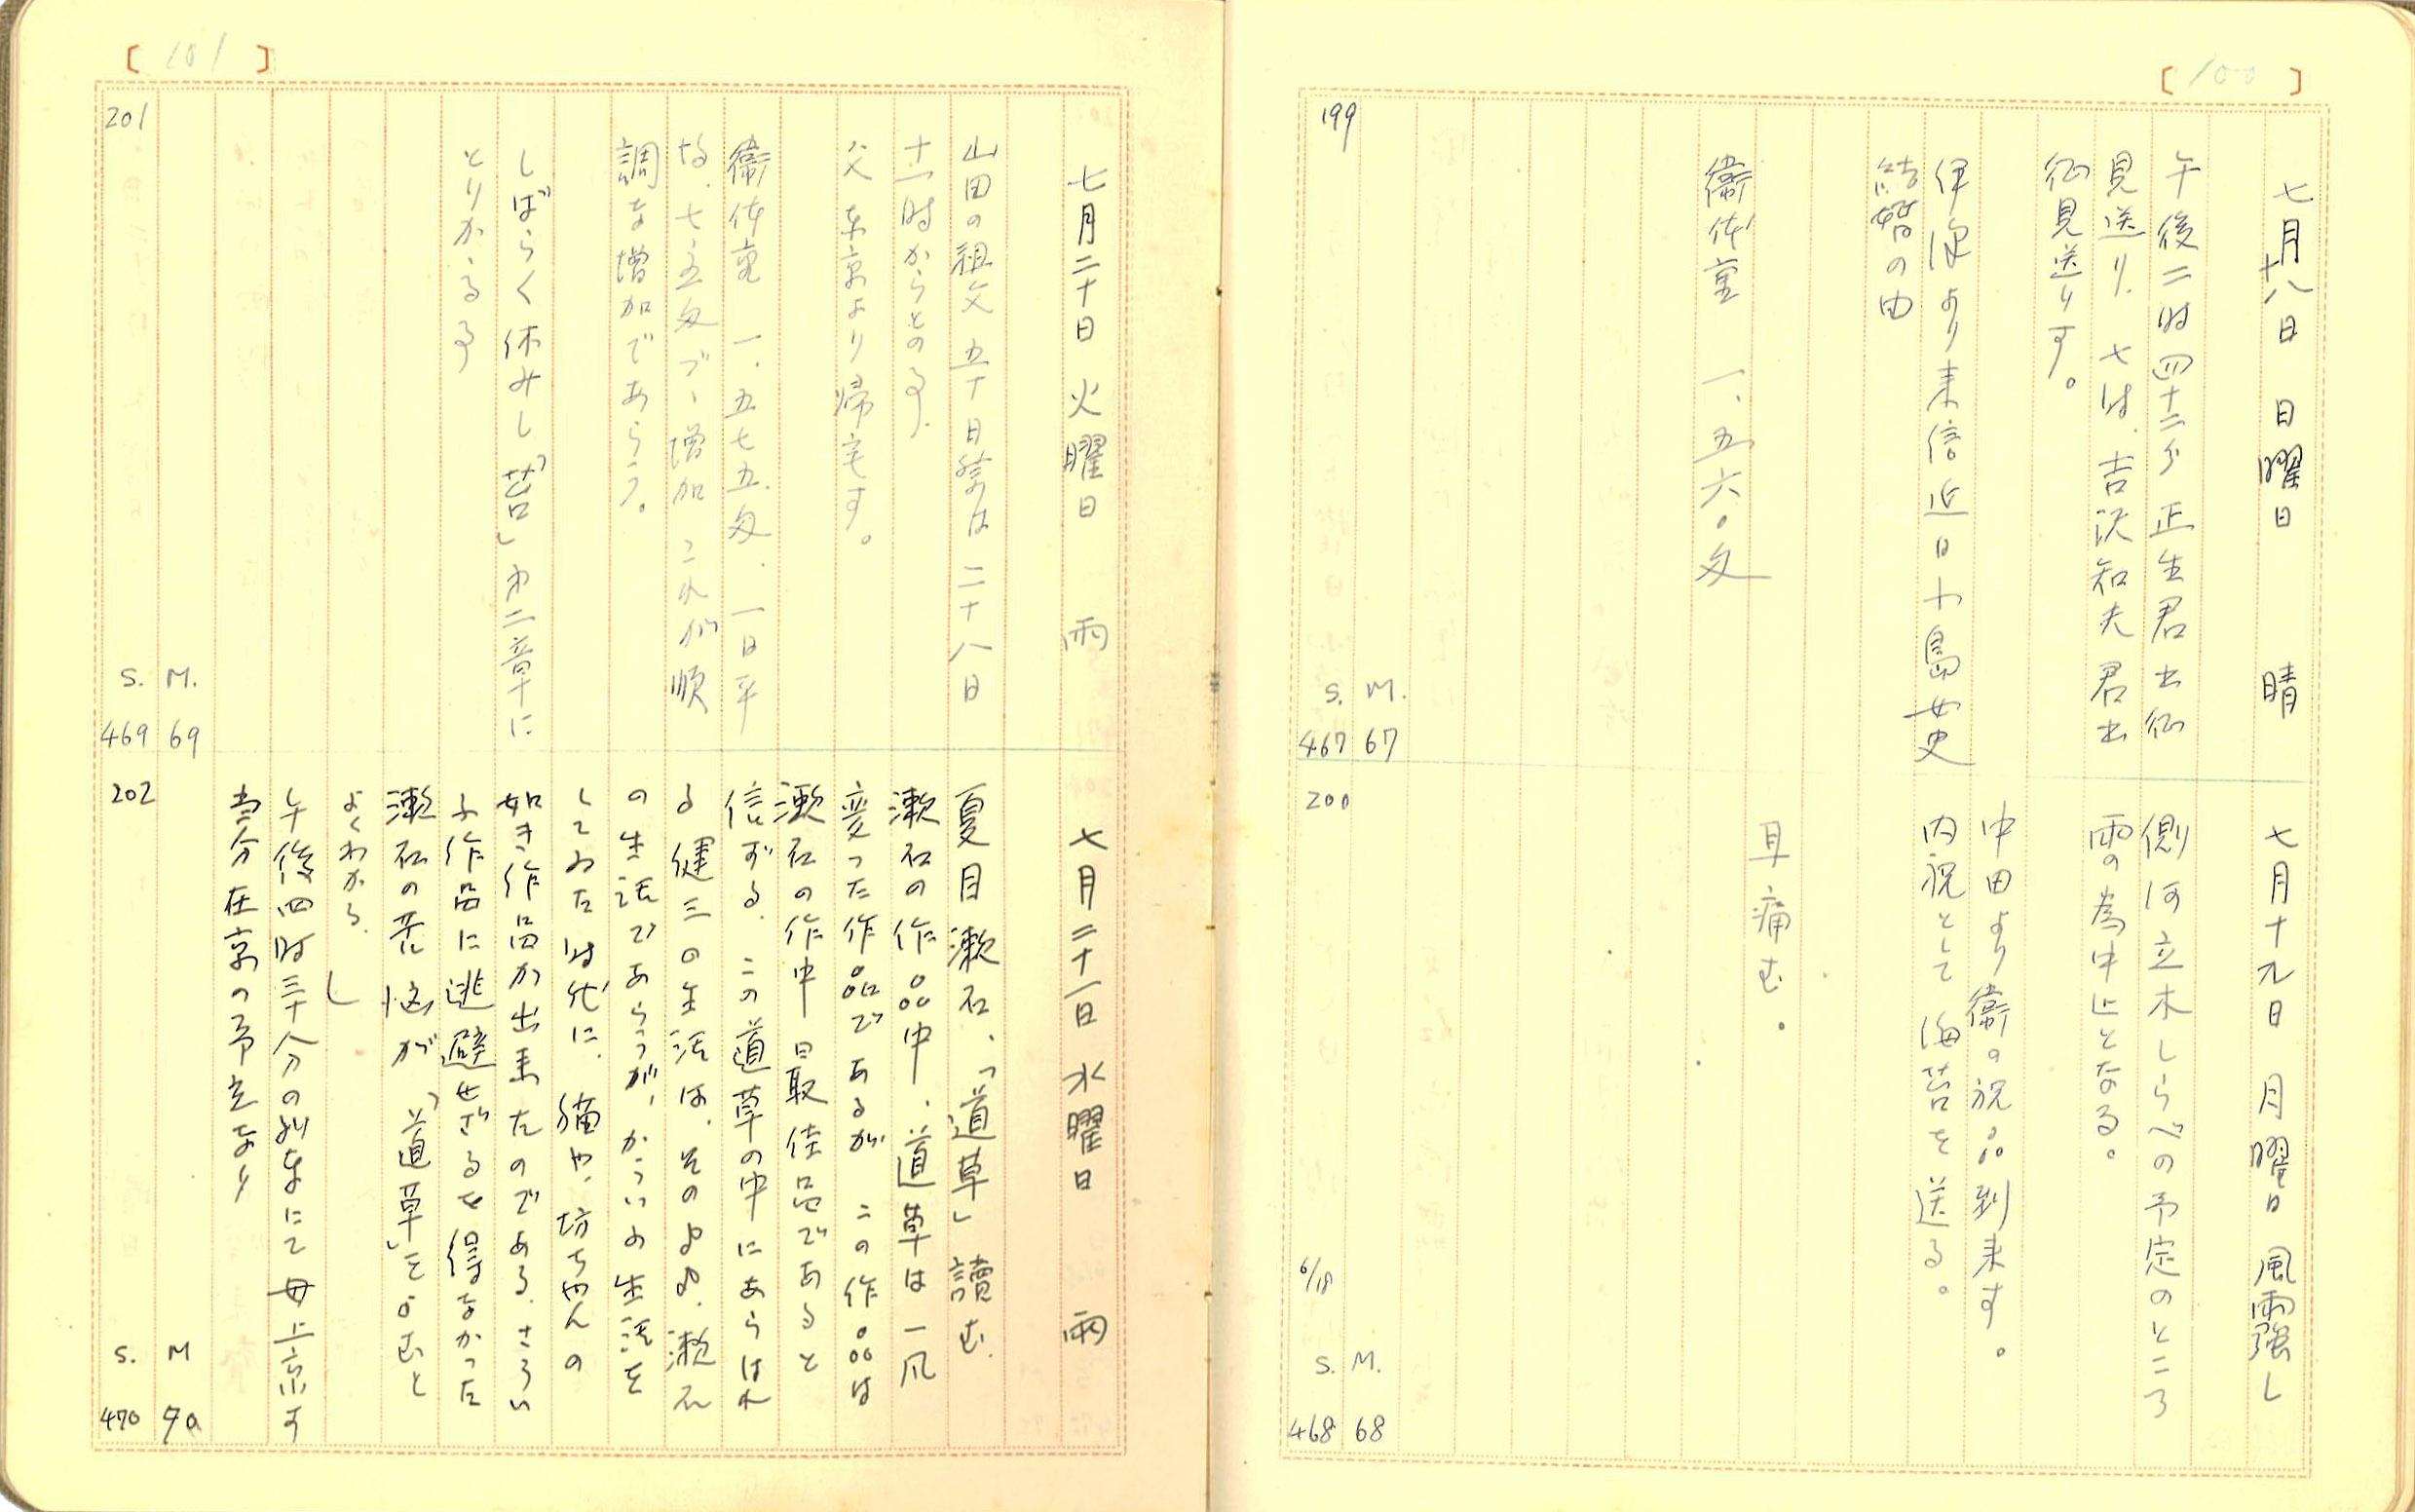 [100]
七月十八日 日曜日 晴
午後二時四十二分 正生君出征
見送り、七時、吉沢知夫君出
征見送りす。
伊沢より来信 近日小島女史
結婚の由
衞体重 一、五六〇匁
199
S. M.
467 67
七月十九日 月曜日 風雨強し
側河立木しらべの予定のところ
雨の為中止となる。
中田より衞の祝品到来す。
内祝として海苔を送る。
耳痛む。
200
6/18
S. M.
468 68
[101]
七月二十日 火曜日 雨
山田の祖父 五十日祭は二十八日
十一時からとの事.
父 東京より帰宅す。
衞体重 一、五七五匁. 一日平
均、七、五匁づゝ増加 これが順
調な増加であらう。
しばらく休みし「苔」第二章に
とりかゝる事
201
S. M.
469 69
七月二十一日 水曜日 雨
夏目漱石、「道草」讀む.
漱石の作品中、道草は一風
変った作品であるが この作品は
漱石の作中最佳品であると
信ずる. この道草の中にあらはれ
る健三の生活は、そのまゝ、漱石
の生活であらうが、かういふ生活を
してゐた時代に、猫や、坊ちやんの
如き作品が出来たのである. さうい
ふ作品に逃避せざるを得なかった
漱石の苦悩が、「道草」をよむと
よくわかる.
午後四時三十分の列車にて母上京す
当分在京の予定なり
202
S. M
470 70